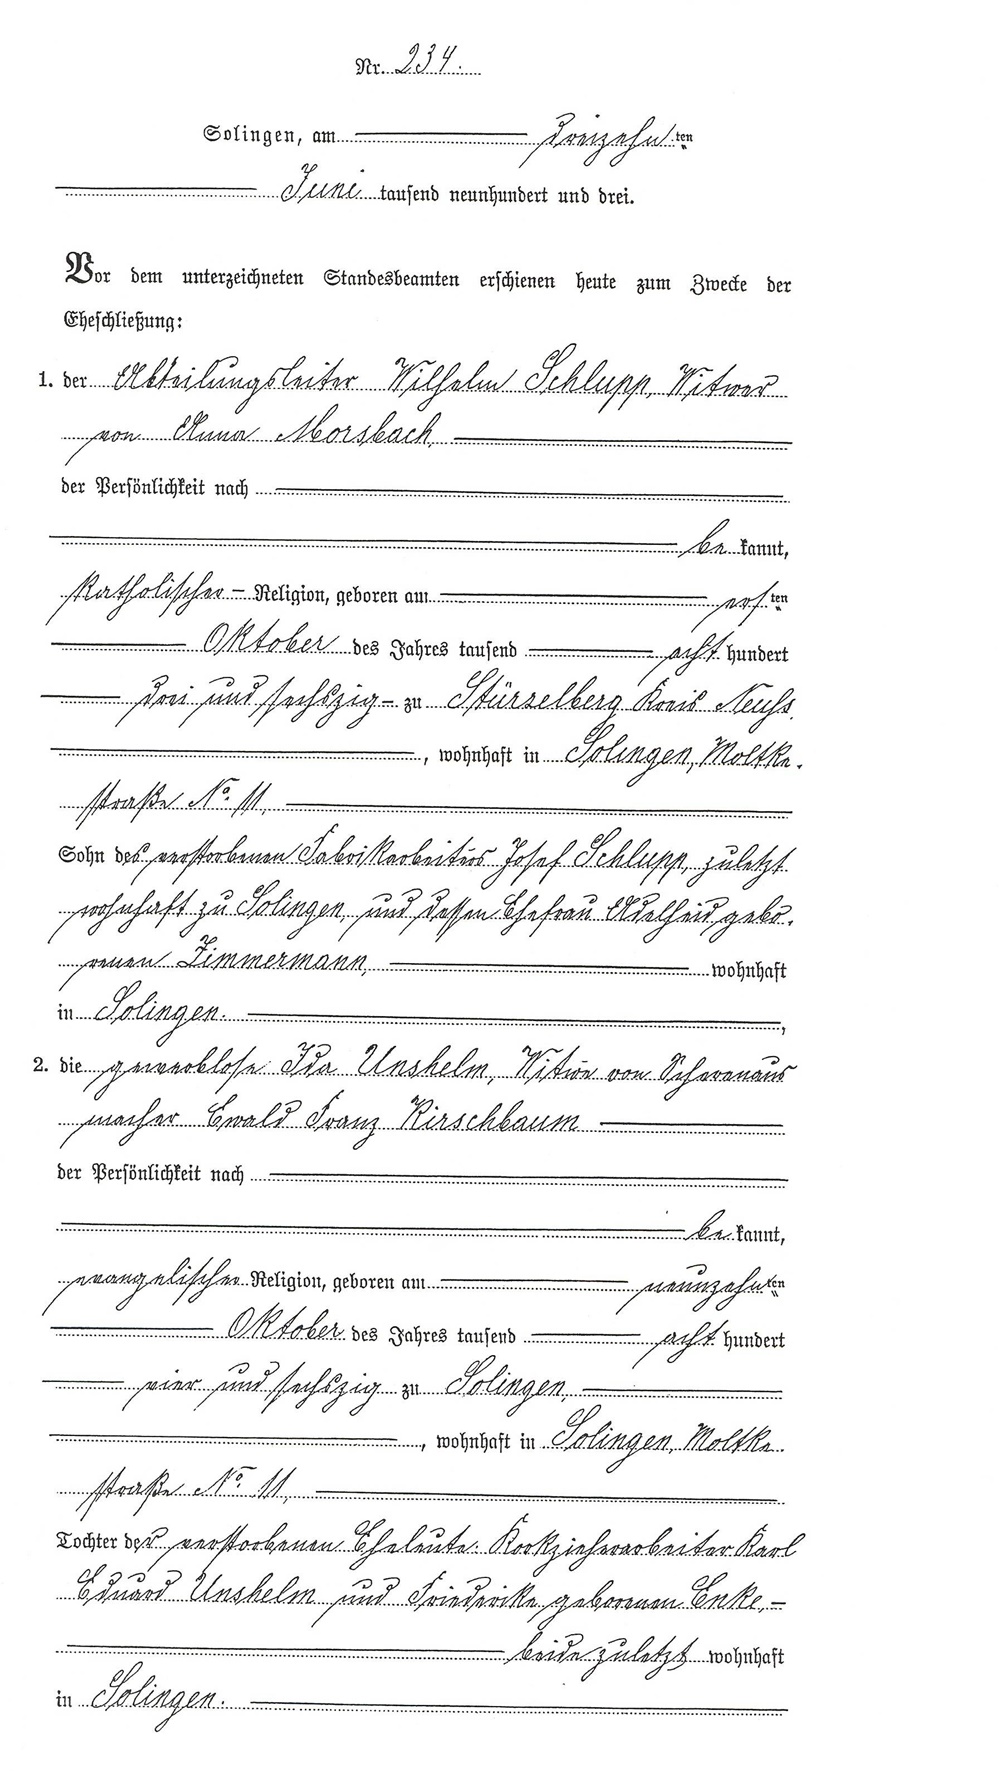 Nr. 234.
Solingen, am dreizehnten
Juni tausend neunhundert und drei.
Vor dem unterzeichneten Standesbeamten erschienen heute zum Zwecke der
Eheschließung:
1. der Abteilungsleiter Wilhelm Schlupp, Witwer
von Anna Morsbach,
der Persönlichkeit nach
be kannt,
katholischer Religion, geboren am ersten
Oktober des Jahres tausend acht hundert
drei und sechszig zu Stürzelberg Kreis Neuss,
, wohnhaft in Solingen, Moltke-
straße No. 11,
Sohn des verstorbenen Fabrikarbeiters Josef Schlupp, zuletzt
wohnhaft zu Solingen, und dessen Ehefrau Adelheid gebo-
renen Zimmermann, wohnhaft
in Solingen. ,
2. die gewerblose Ida Unshelm, Witwe von Scherenaus
macher Ewald Franz Kirschbaum
der Persönlichkeit nach
be kannt,
evangelischer Religion, geboren am neunzehnten
Oktober des Jahres tausend acht hundert
vier und sechszig zu Solingen,
, wohnhaft in Solingen, Moltke-
straße No. 11,
Tochter der verstorbenen Eheleute: Korkzieherarbeiter Karl
Eduard Unshelm und Friederike geborenen Enke,
beide zuletzt wohnhaft
in Solingen.